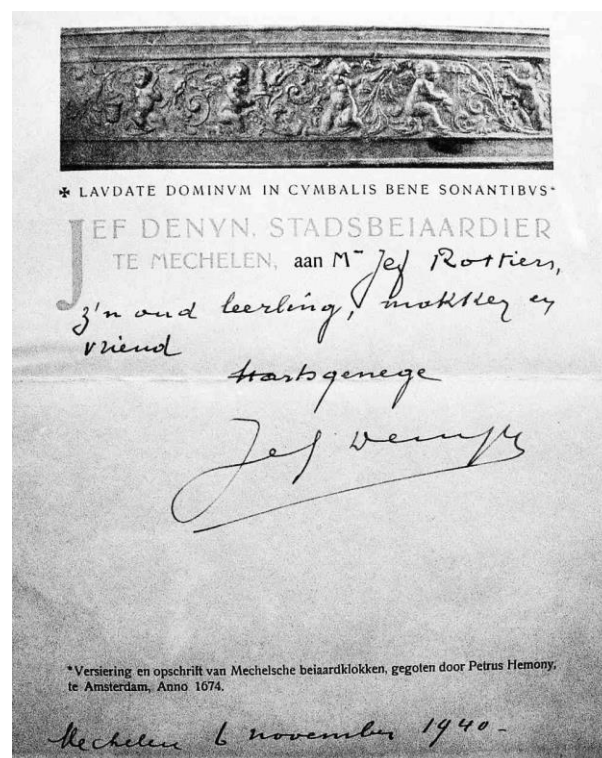 ✠ LAVDATE DOMINVM IN CYMBALIS BENE SONANTIBVS*
JEF DENYN, STADSBEIAARDIER
TE MECHELEN, aan Mr Jef Rottiers,
z'n oud leerling, makker en
vriend
Hartsgenege
Jef Denyn
*Versiering en opschrift van Mechelsche beiaardklokken, gegoten door Petrus Hemony,
te Amsterdam, Anno 1674.
Mechelen 6 november 1940-